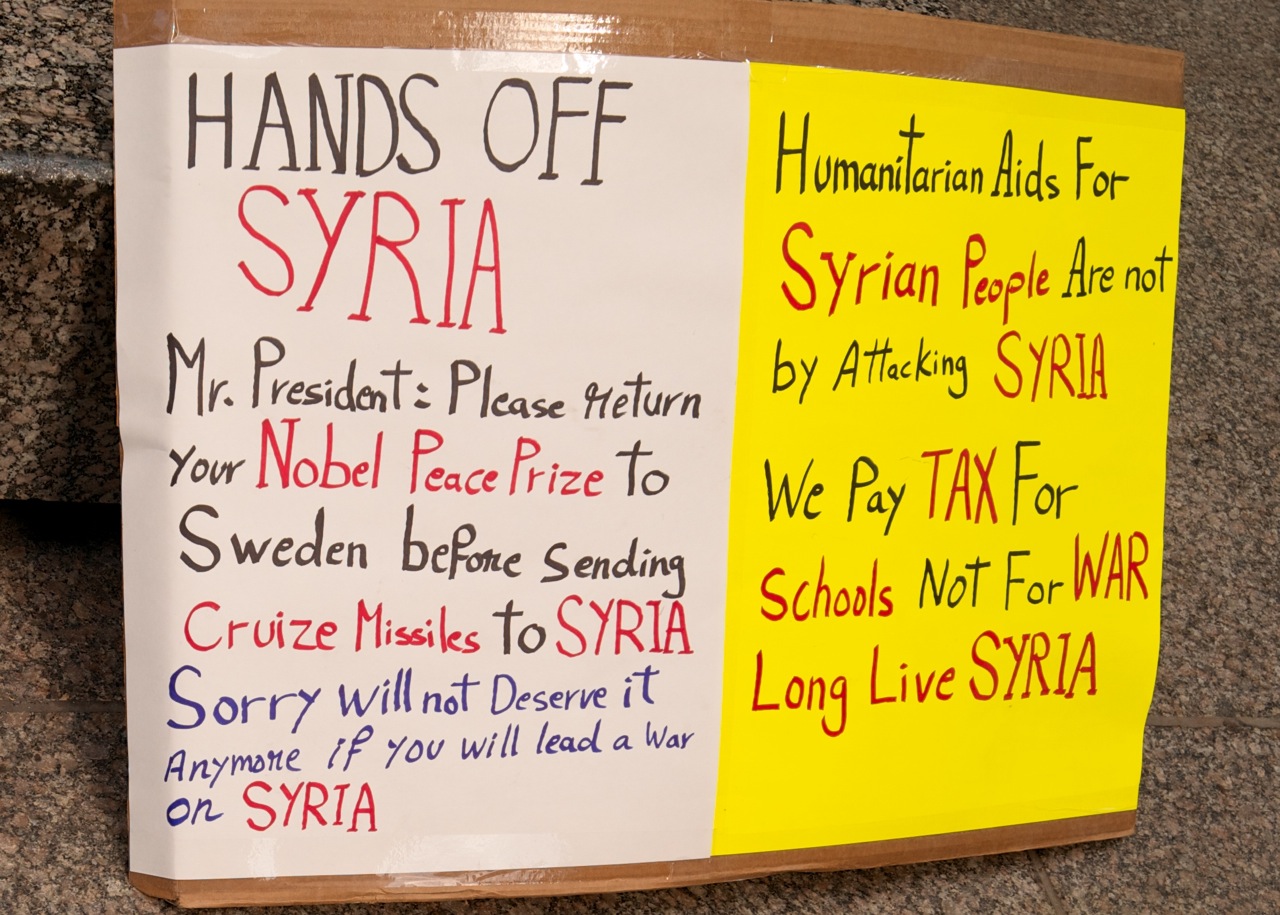 HANDS OFF
SYRIA
Mr. President: Please Return
your Nobel Peace Prize to
Sweden before sending
Cruize Missiles to SYRIA
Sorry will not Deserve it
Anymore if you will lead a War
on SYRIA
Humanitarian Aids For
Syrian People Are not
by Attacking SYRIA
We Pay TAX For
Schools Not For WAR
Long Live SYRIA